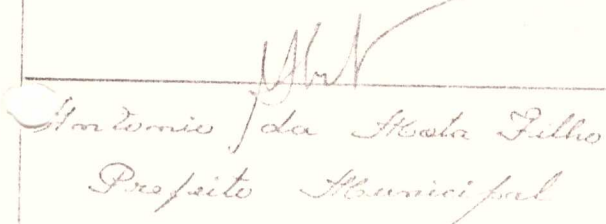 Antonio da Mata Filho
Prefeito Municipal